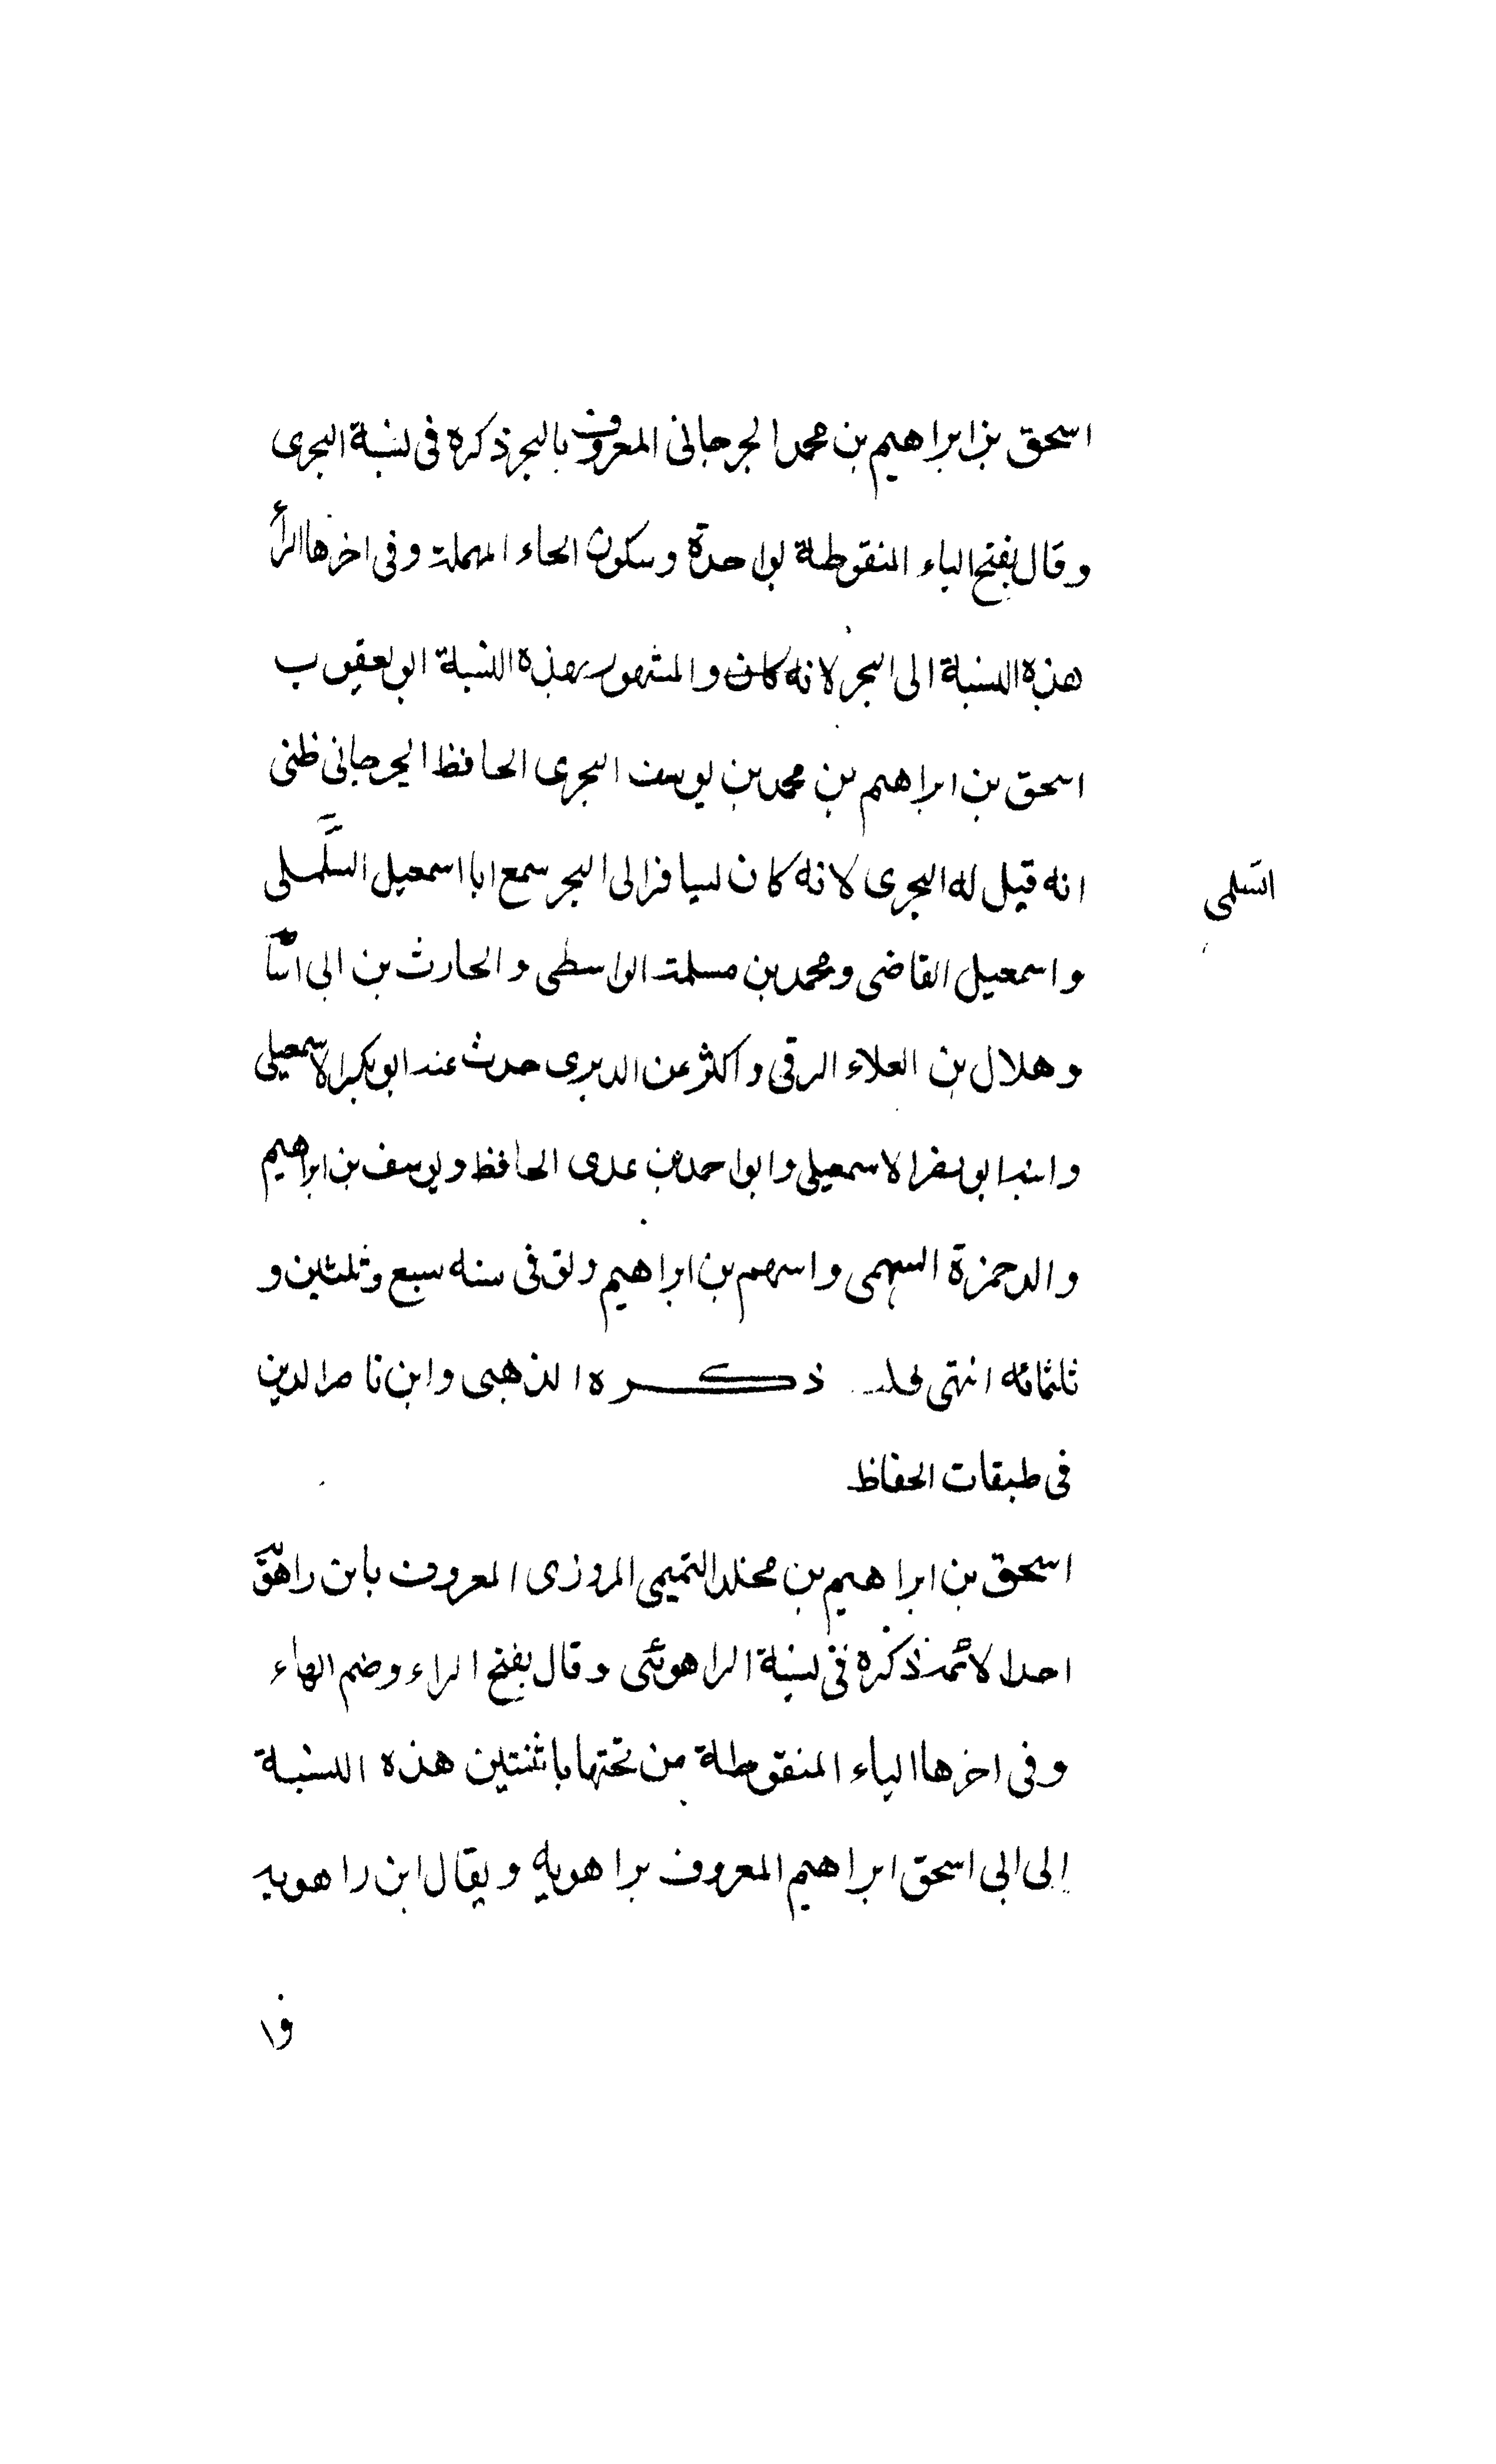 اسحق بن ابراهيم بن محمد الجرجانى المعروف بالبحر ذكره فى نسبة البحرى
وقال بفتح الباء المنقوطة بواحدة وسكون الحاء المهملة وفى اخرها الرأ
هذه النسبة الى البحر لانه كان والمشهور بهذه النسبة ابو يعقوب
اسحق بن ابراهيم بن محمد بن يوسف البحرى الحافظ الجرجانى ظنى
انه قيل له البحرى لانه كان يسافر الى البحر سمع ابا اسمعيل
السلمى
واسمعيل القاضى ومحمد بن مسلمة الواسطى والحارث بن ابى
وهلال بن العلاء الرقى واكثر عن الدبرى حدث عنه ابو بكر الاسمعيلى
وابنه ابو الاسمعيلى وابو احمد بن عدى الحافظ ويوسف بن ابراهيم
والد حمزة السهمى واسهم بن ابراهيم فى سنه سبع وثلثين و
ثلثمائه انتهى ذكره الذهبى وابن ناصر الدين
فى طبقات الحفاظ
اسحق بن ابراهيم بن مخلد التميمى المروزى المعروف بابن
احد الائمة ذكره فى نسبة الراهوئى وقال بفتح الراء وضم الهاء
وفى اخرها الياء المنقوطة من تحتها باثنتين هذه النسبة
الى ابى اسحق ابراهيم المعروف براهويه ويقال ابن راهويه